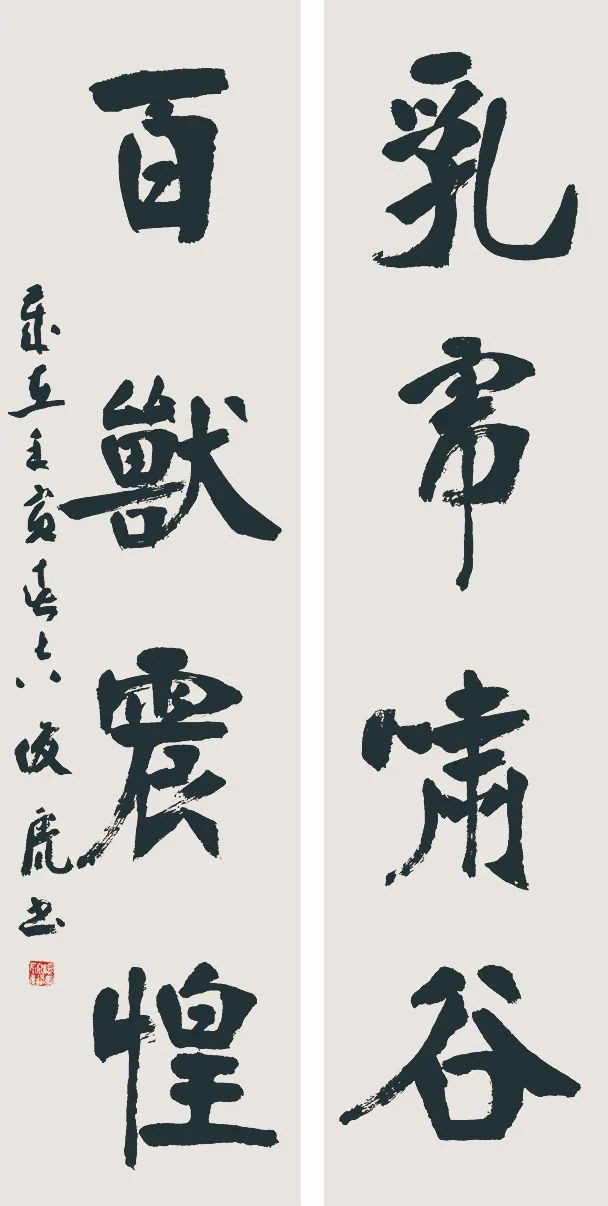 乳虎啸谷
百獸震惶
歲在壬寅春 俊虎书